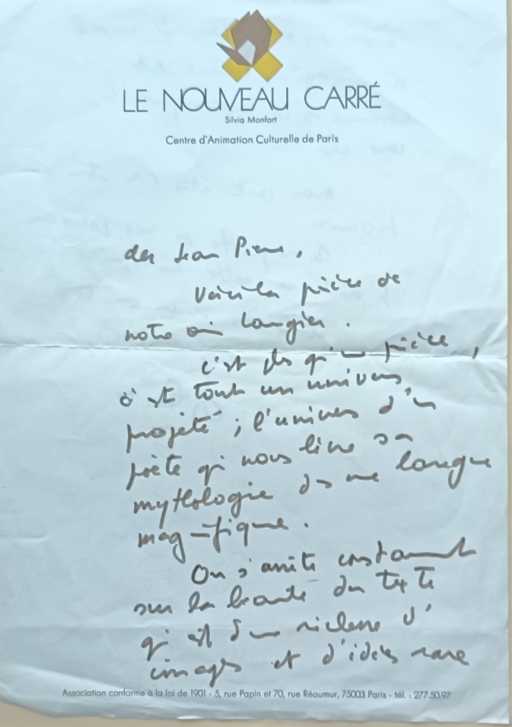 LE NOUVEAU CARRÉ
Silvia Monfort
Centre d'Animation Culturelle de Paris
cher Jean Pierre,
Voici la pièce de
notre ami Laugier.
C'est plus qu'une pièce,
c'est tout un univers
projeté ; l'univers d'un
poète qui nous livre sa
mythologie ds une langue
magnifique.
On s'arrête constamment
sur la beauté du texte
qui est d'une richesse d'
images et d'idées rare
Association conforme à la loi de 1901 - 5, rue Papin et 70, rue Réaumur, 75003 Paris - tél. : 277.50.97